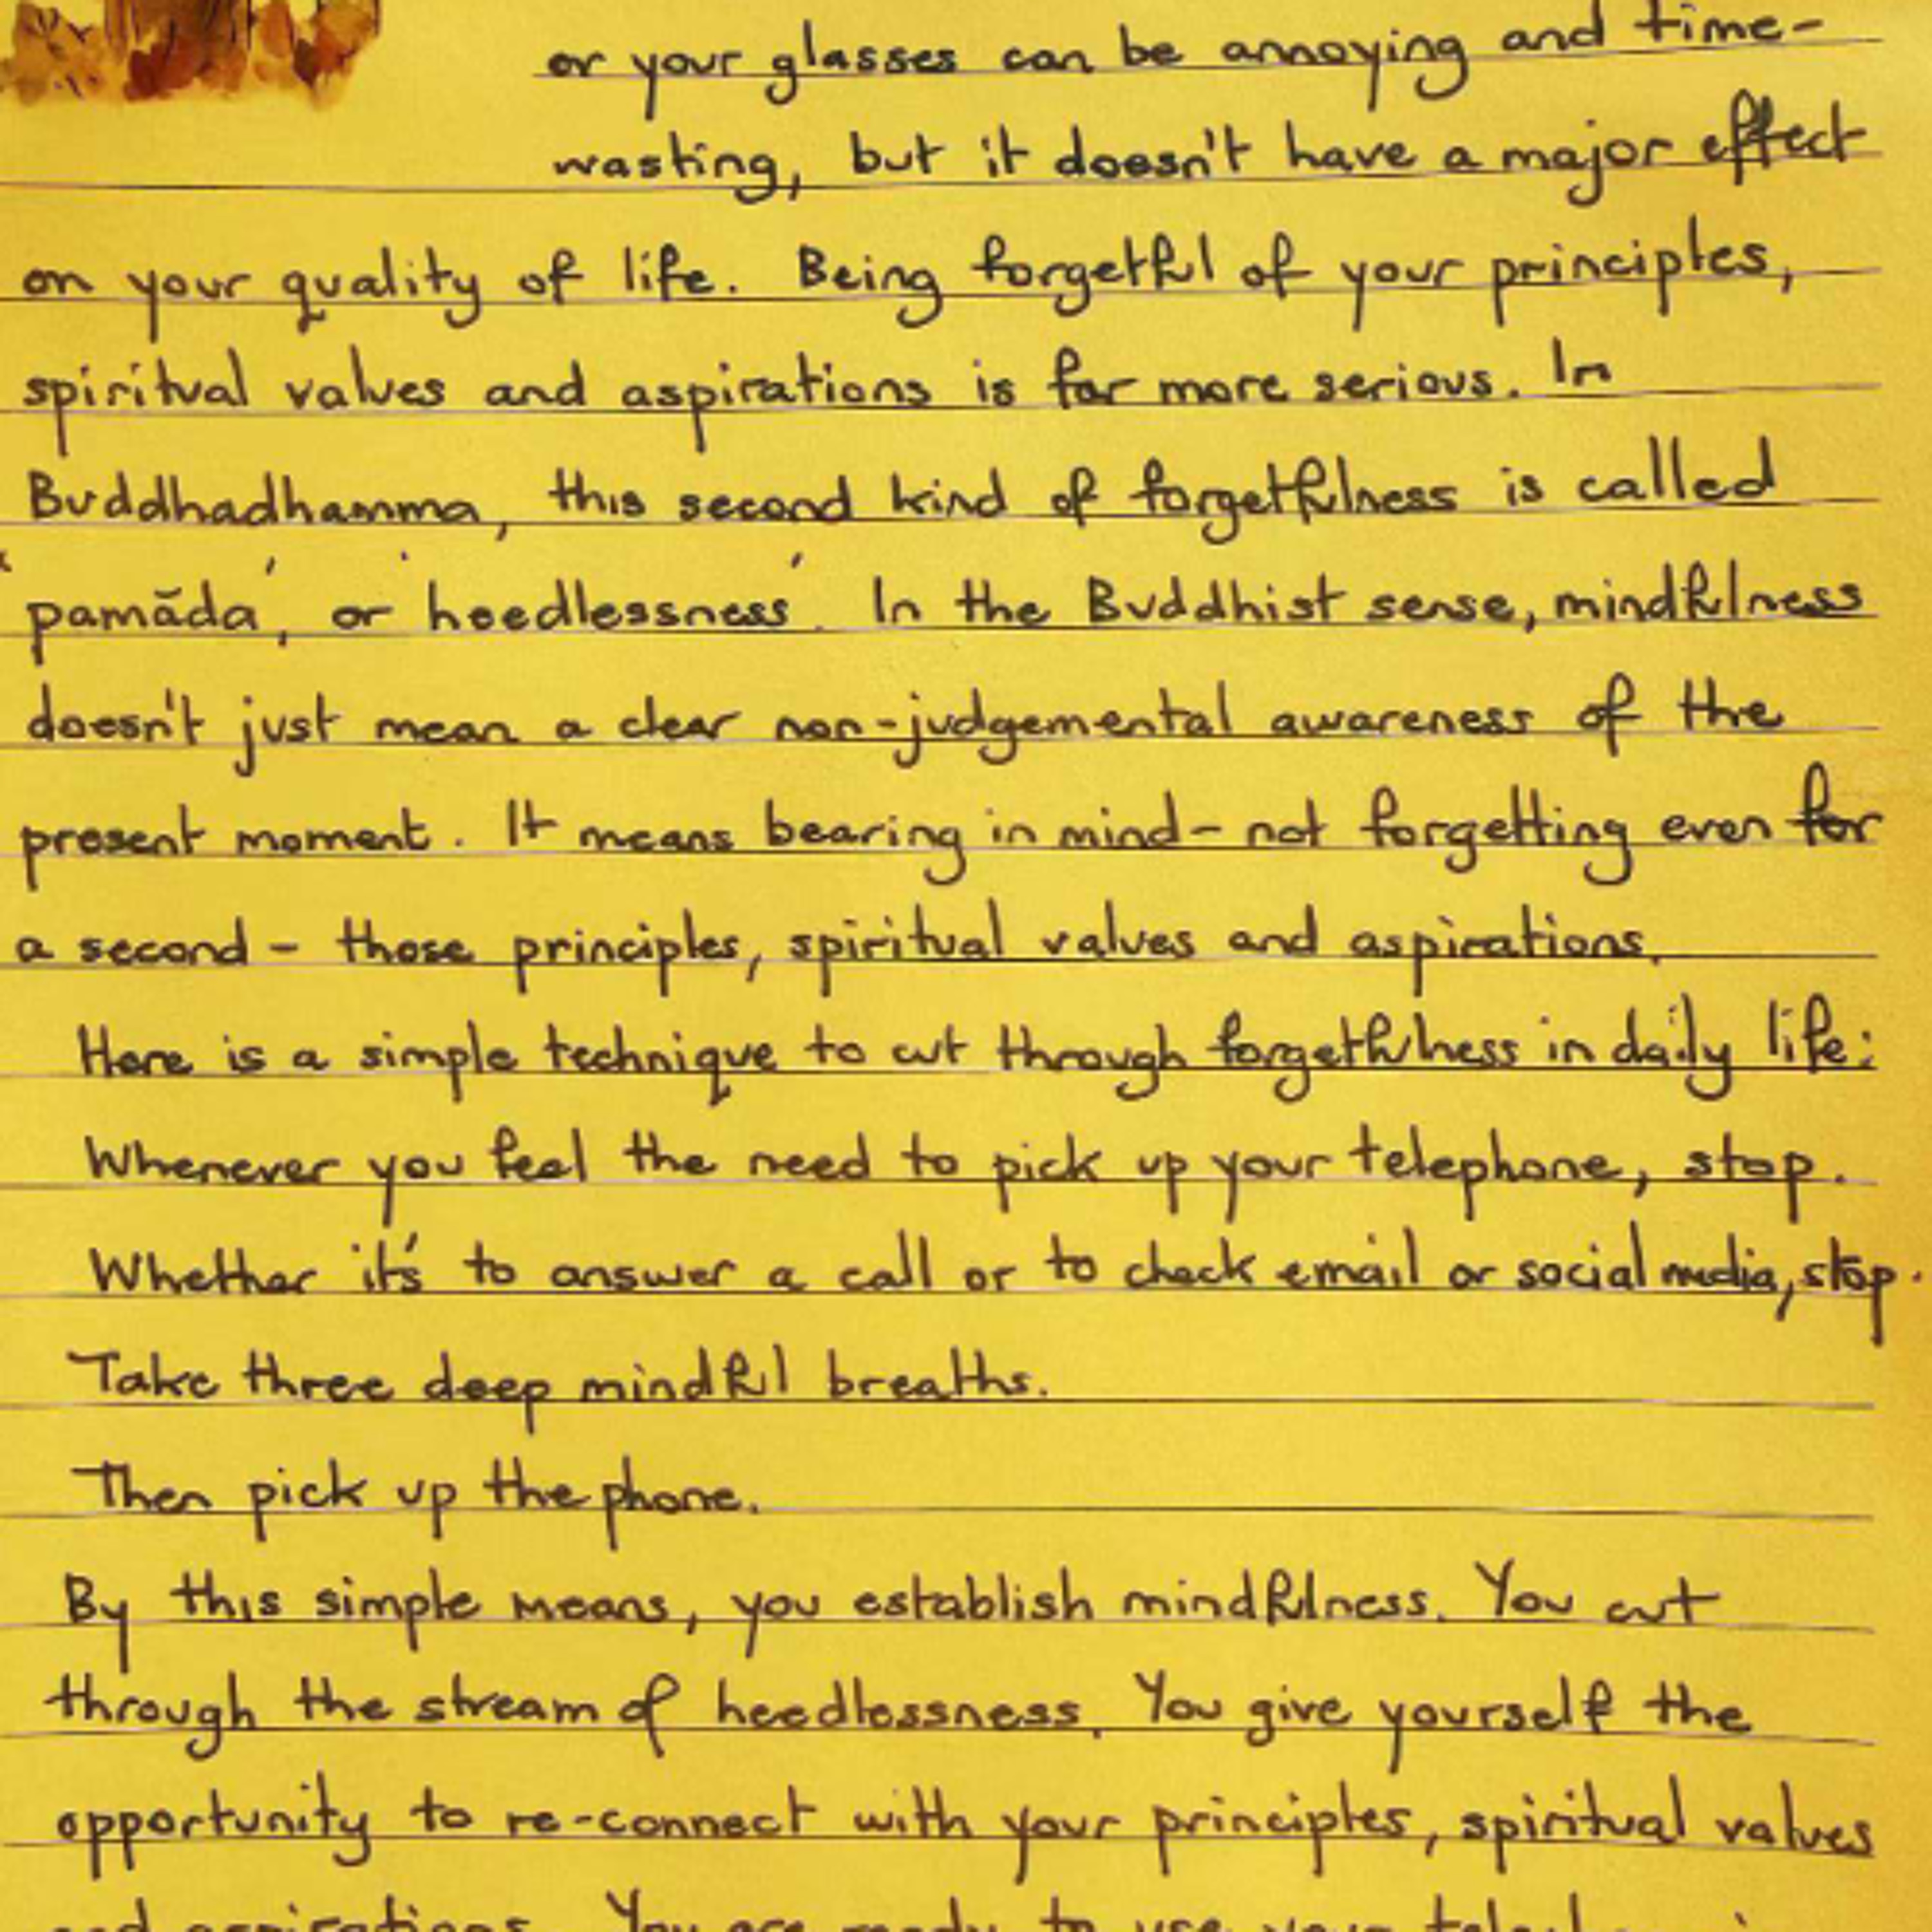 or your glasses can be annoying and time-
wasting, but it doesn't have a major effect
on your quality of life. Being forgetful of your principles,
spiritual values and aspirations is far more serious. In
Buddhadhamma, this second kind of forgetfulness is called
'pamāda', or 'heedlessness'. In the Buddhist sense, mindfulness
doesn't just mean a clear non-judgemental awareness of the
present moment. It means bearing in mind - not forgetting even for
a second - those principles, spiritual values and aspirations.
Here is a simple technique to cut through forgetfulness in daily life:
Whenever you feel the need to pick up your telephone, stop.
Whether it's to answer a call or to check email or social media, stop.
Take three deep mindful breaths.
Then pick up the phone.
By this simple means, you establish mindfulness. You cut
through the stream of heedlessness. You give yourself the
opportunity to re-connect with your principles, spiritual values
and aspirations. You are ready to use your